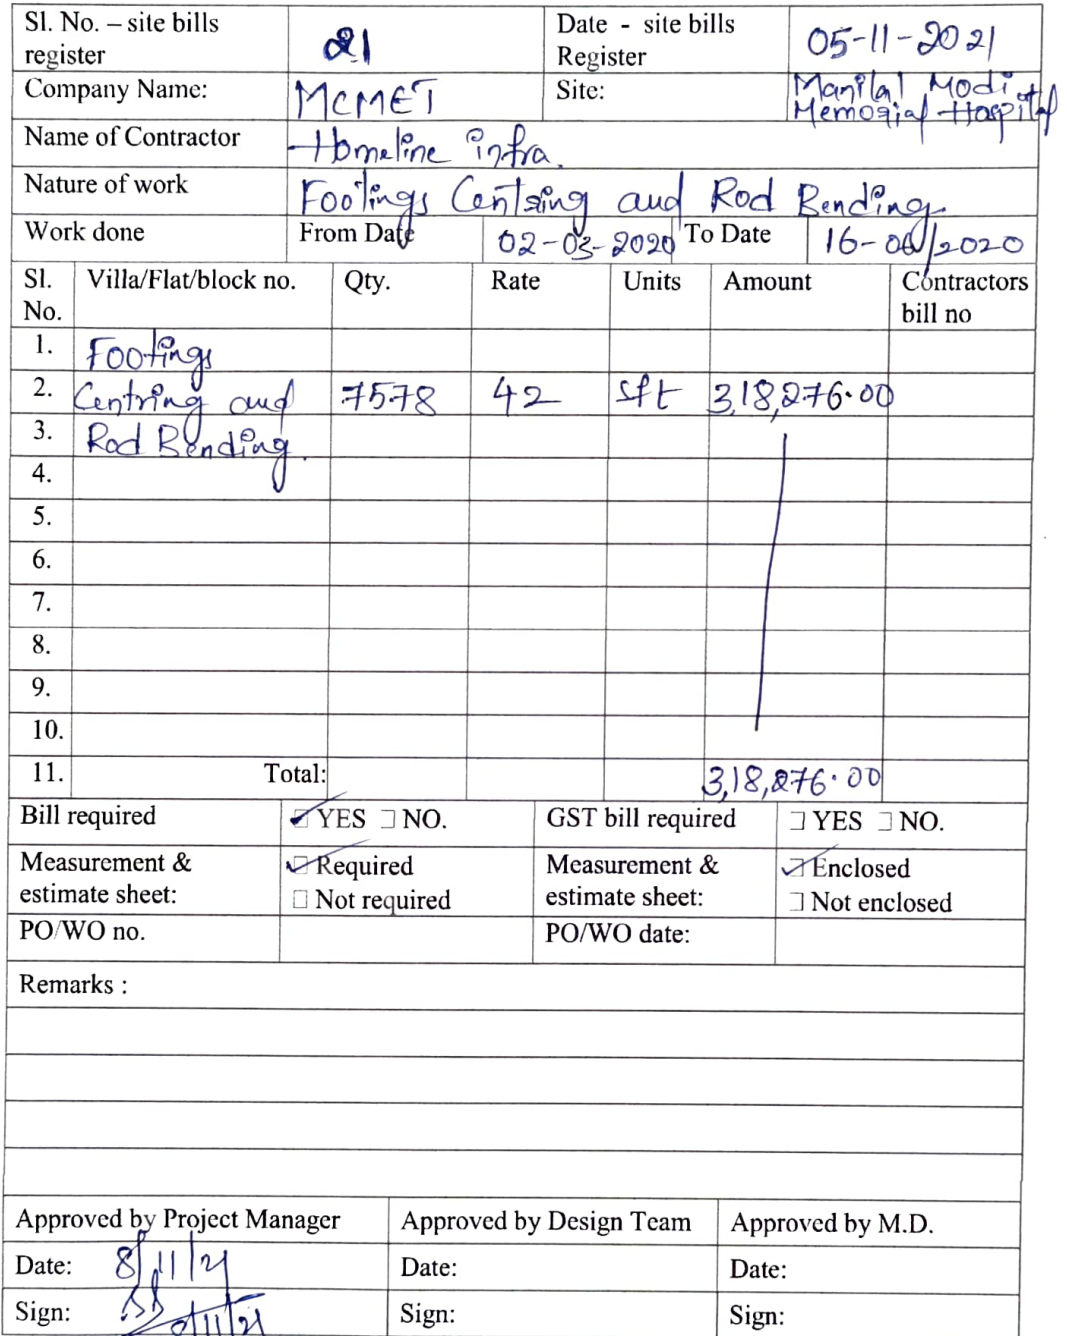 Sl. No. – site bills register 21 Date - site bills Register 05-11-2021
Company Name: MCMET Site: Manilal Modi Memorial Hospital
Name of Contractor Homeline infra.
Nature of work Footings Centring and Rod Bending
Work done From Date 02-03-2020 To Date 16-06/2020
Sl. No. Villa/Flat/block no. Qty. Rate Units Amount Contractors bill no
1. Footings
2. Centring and 7578 42 sft 3,18,276.00
3. Rod Bending.
4.
5.
6.
7.
8.
9.
10.
11. Total: 3,18,276.00
Bill required YES NO. GST bill required YES NO.
Measurement & estimate sheet: Required Not required Measurement & estimate sheet: Enclosed Not enclosed
PO/WO no. PO/WO date:
Remarks :
Approved by Project Manager Approved by Design Team Approved by M.D.
Date: 8/11/21 Date: Date:
Sign: Sign: Sign: